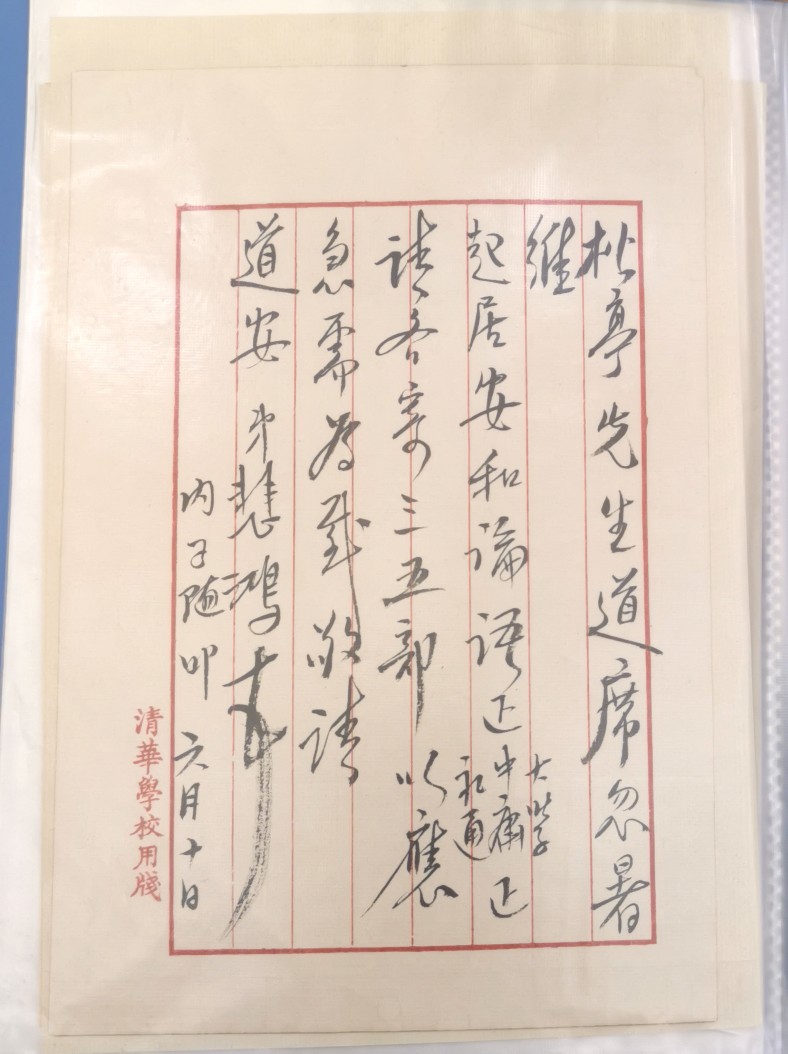 松亭先生道席忽暑
維
起居安和論語正大學中庸正永通
請各寄三五部以應
急需為感敬請
道安弟悲鴻
內子隨叩六月十日
清華學校用牋